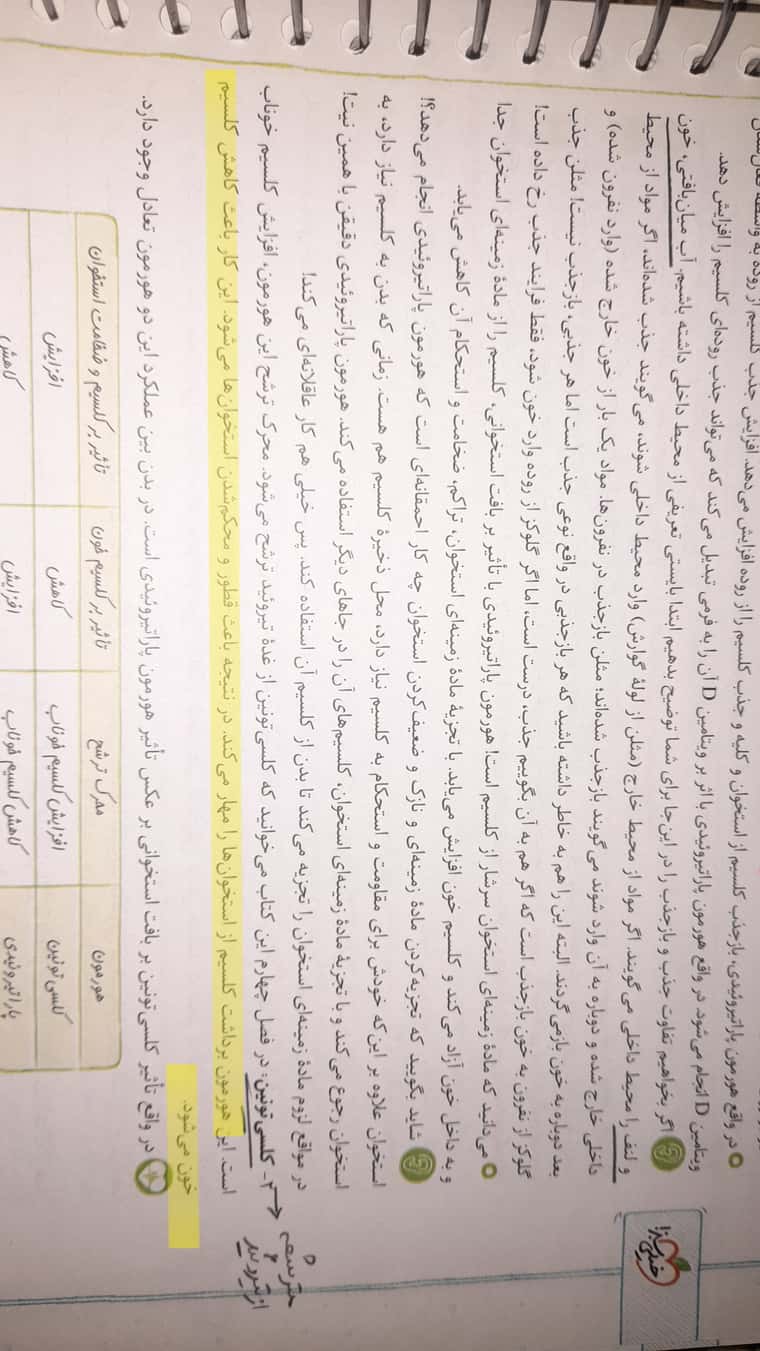 به واسطه فعال‌شدن
جذب کلسیم از روده افزایش می‌دهد. افزایش جذب کلسیم از روده
در واقع هورمون پاراتیروئیدی، بازجذب کلسیم از استخوان و کلیه و جذب کلسیم را از روده
ویتامین D انجام می‌شود. در واقع هورمون پاراتیروئیدی با اثر بر ویتامین D آن را به فرمی تبدیل می‌کند که می‌تواند جذب روده‌ای کلسیم را افزایش دهد.
اگر بخواهیم تفاوت جذب و بازجذب را در این‌جا برای شما توضیح بدهیم ابتدا بایستی تعریفی از محیط داخلی داشته باشیم. آب میان‌بافتی، خون
و لنف را محیط داخلی می‌گویند. اگر مواد از محیط خارج (مثلن از لولهٔ گوارش) وارد محیط داخلی شوند، می‌گویند جذب شده‌اند، اگر مواد از محیط
داخلی خارج شده و دوباره به آن وارد شوند می‌گویند بازجذب شده‌اند؛ مثلن بازجذب در نفرون‌ها. مواد یک بار از خون خارج شده (وارد نفرون شده) و
بعد دوباره به خون بازمی‌گردند. البته این را هم به خاطر داشته باشید که هر بازجذبی در واقع نوعی جذب است اما هر جذبی، بازجذب نیست! مثلن جذب
گلوکز از نفرون به خون بازجذب است که اگر هم به آن بگوییم جذب، درست است، اما اگر گلوکز از روده وارد خون شود، فقط فرایند جذب رخ داده است!
می‌دانید که مادهٔ زمینه‌ای استخوان سرشار از کلسیم است! هورمون پاراتیروئیدی با تأثیر بر بافت استخوانی، کلسیم را از مادهٔ زمینه‌ای استخوان جدا
و به داخل خون آزاد می‌کند و کلسیم خون افزایش می‌یابد. با تجزیهٔ مادهٔ زمینه‌ای استخوان، تراکم، ضخامت و استحکام آن کاهش می‌یابد.
شاید بگویید که تجزیه‌کردن مادهٔ زمینه‌ای و نازک و ضعیف‌کردن استخوان چه کار احمقانه‌ای است که هورمون پاراتیروئیدی انجام می‌دهد؟!
استخوان علاوه بر این‌که خودش برای مقاومت و استحکام به کلسیم نیاز دارد، محل ذخیرهٔ کلسیم هم هست. زمانی که بدن به کلسیم نیاز دارد، به
استخوان رجوع می‌کند و با تجزیهٔ مادهٔ زمینه‌ای استخوان، کلسیم‌های آن را در جاهای دیگر استفاده می‌کند. هورمون پاراتیروئیدی دقیقن با همین نیت!
در مواقع لزوم مادهٔ زمینه‌ای استخوان را تجزیه می‌کند تا بدن از کلسیم آن استفاده کند. پس خیلی هم کار عاقلانه‌ای می‌کند!
۲- کلسی‌تونین: در فصل چهارم این کتاب می‌خوانید که کلسی‌تونین از غدهٔ تیروئید ترشح می‌شود. محرک ترشح این هورمون، افزایش کلسیم خوناب
است. این هورمون برداشت کلسیم از استخوان‌ها را مهار می‌کند. در نتیجه باعث قطور و محکم‌شدن استخوان‌ها می‌شود. این کار باعث کاهش کلسیم
خون می‌شود.
در واقع تأثیر کلسی‌تونین بر بافت استخوانی بر عکس تأثیر هورمون پاراتیروئیدی است. در بدن بین عملکرد این دو هورمون تعادل وجود دارد.
هورمون محرک ترشح تأثیر بر کلسیم خون تأثیر بر کلسیم و ضخامت استخوان
کلسی‌تونین افزایش کلسیم خوناب کاهش افزایش
پاراتیروئیدی کاهش کلسیم خوناب افزایش کاهش
خیلی سبز!